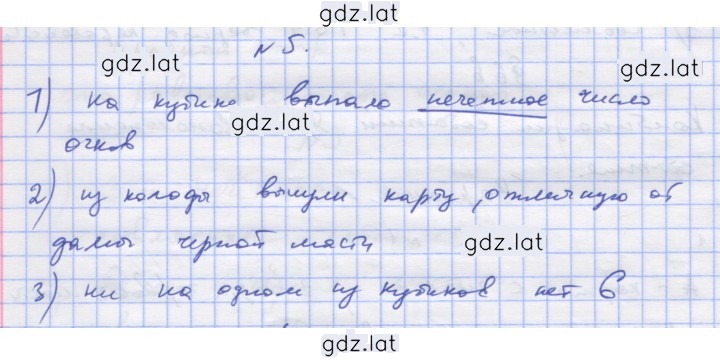 gdz.lat
№5.
gdz.lat
gdz.lat
1) на кубике выпало нечетное число
gdz.lat
очков
2) из колоды вынули карту, отличную от
gdz.lat
дамы черной масти
gdz.lat
3) ни на одном из кубиков нет 6
gdz.lat
gdz.lat